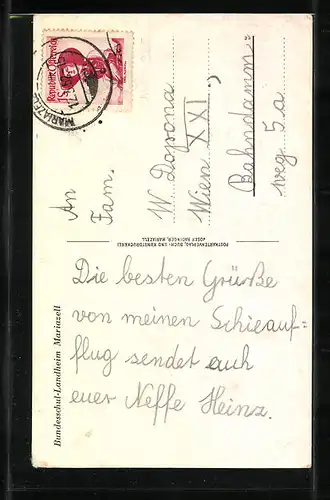 Republik Österreich
1S
MARIAZELL
An
Fam.
W. Dopona
Wien XXI,
Bahndamm-
weg 5a
POSTKARTENVERLAG, BUCH- UND KUNSTDRUCKEREI
JOSEF RADINGER, MARIAZELL
Bundesschul-Landheim Mariazell
Die besten Grüße
von meinen Schieauf=
flug sendet euch
euer Neffe Heinz.